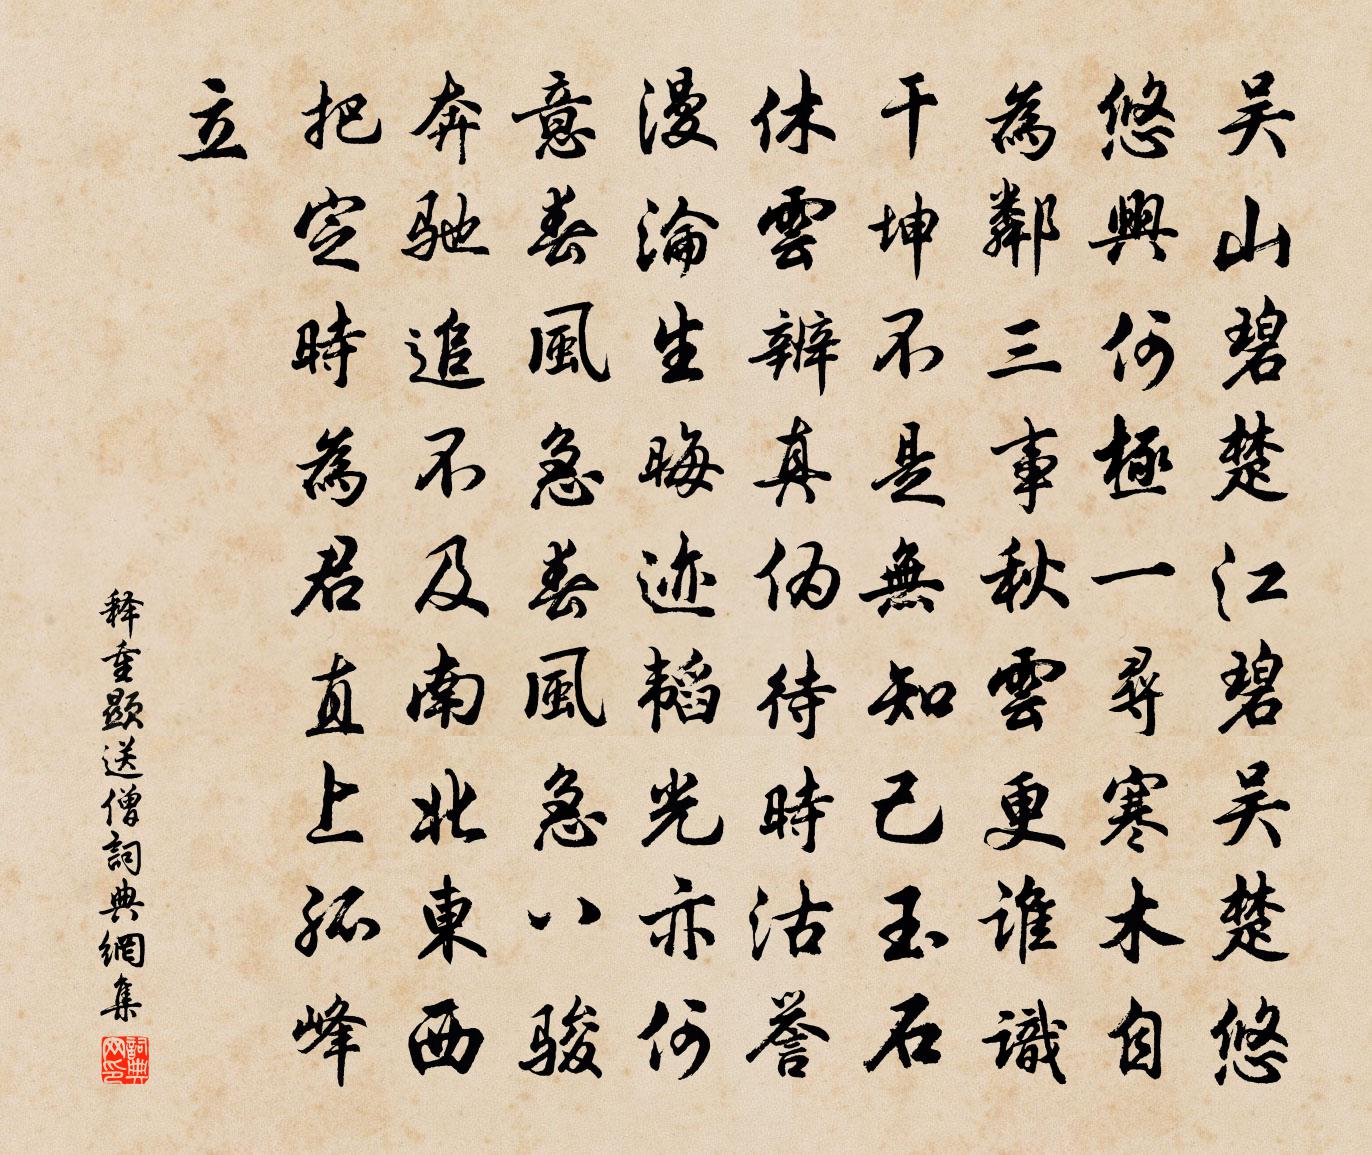 吴山碧楚江碧吴楚悠
悠興何極一尋寒木自
為鄰三事秋雲更谁識
干坤不是無知己玉石
休雲辨真伪待時沽誉
漫淪生晦迹韬光亦何
意春風急春風急八骏
奔驰追不及南北東西
把定時為君直上孤峰
立
释重顯送僧詞典網集
詞典网印